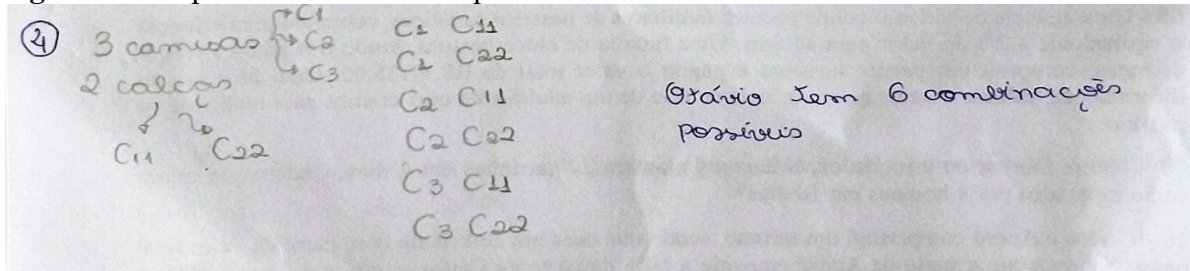 ④ 3 camisas → C1
→ C2
→ C3
2 calças
C11 C22
C1 C11
C1 C22
C2 C11
C2 C22
C3 C11
C3 C22
Otávio tem 6 combinações
possíveis